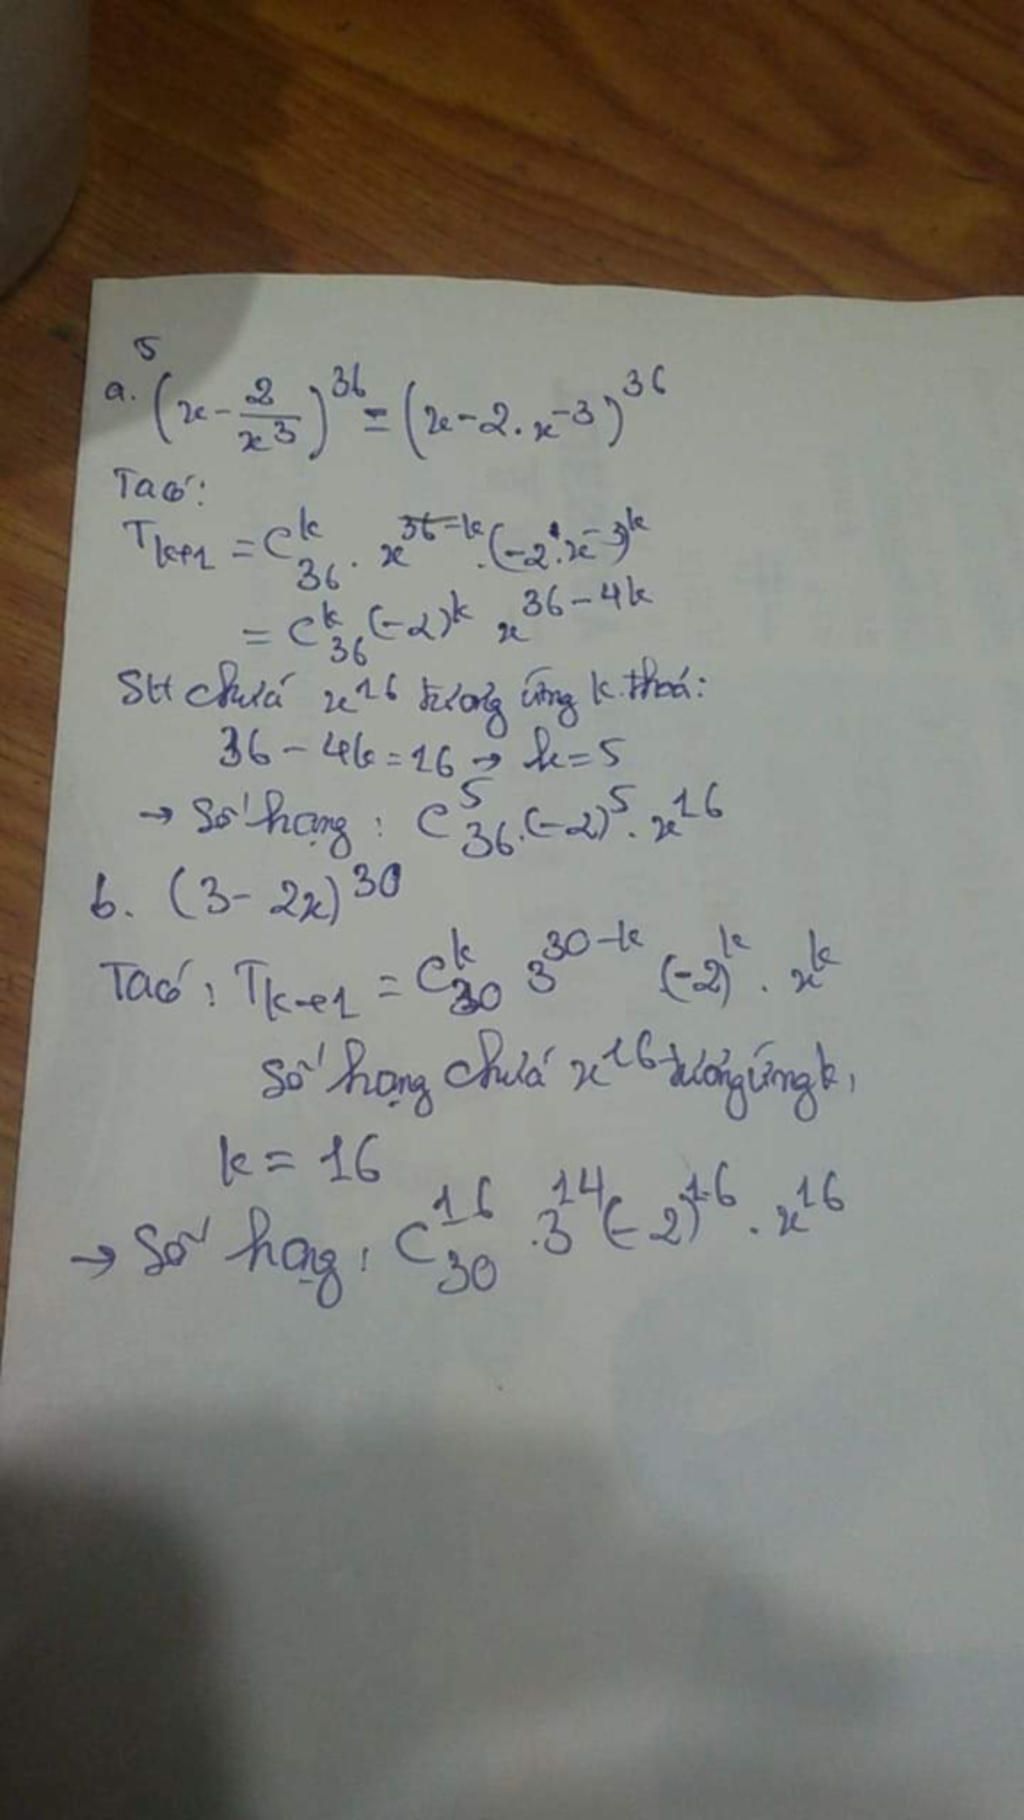 5
a. (x - 2/x^3)^36 = (x - 2 . x^-3)^36
Ta có:
T_k+1 = C^k_36 . x^36-k . (-2 . x^-3)^k
= C^k_36 (-2)^k x^36-4k
SH chứa x^16 tương ứng k thoả:
36 - 4k = 16 → k = 5
→ Số hạng : C^5_36 . (-2)^5 . x^16
b. (3 - 2x)^30
Ta có : T_k+1 = C^k_30 3^30-k (-2)^k . x^k
Số hạng chứa x^16 tương ứng k,
k = 16
→ Số hạng : C^16_30 . 3^14 (-2)^16 . x^16